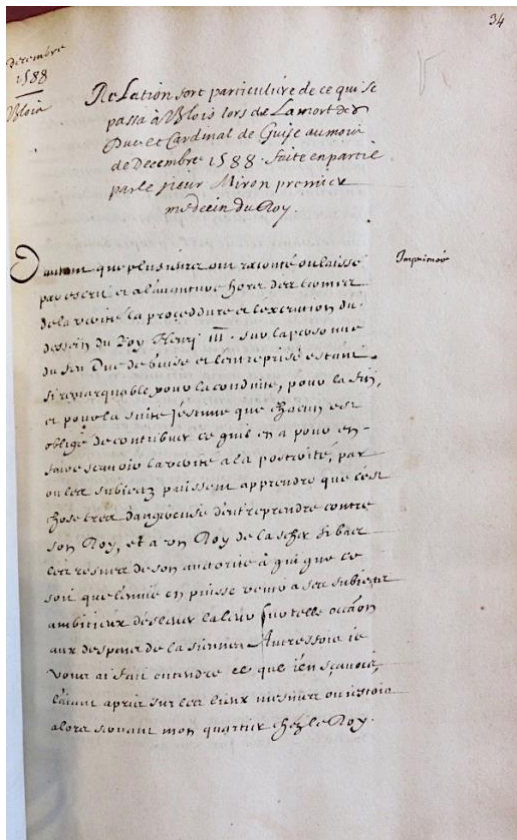 34
decembre
1588
Blois
Relation fort particuliere de ce qui se
passa à Blois lors de La mort des
Duc et Cardinal de Guise au mois
de Decembre 1588. faite en partie
par le sieur Miron premier
medecin du Roy.
Imprimée
Dautant que plusieurs ont raconté ou laissé
par escrit et a l'auanture hors des termes
de la verité la proceddure et l'execution du
dessein du Roy Henri III. sur la personne
du feu Duc de Guise et l'entreprise estant
si remarquable pour la conduite, pour la fin,
et pour la suitte J'estime que chacun est
obligé de contribuer ce quil en a pour en
faire scauoir la verité a la posterité, par
ou les subiectz puissent apprendre que c'est
chose tres dangereuse d'entreprendre contre
son Roy, et a un Roy de lascher si bas
les resnes de son auctorité à qui que ce
soit que l'enuie en puisse venir a ses subiects
ambitieux d'esleuer la leur sur telle occãon
aux despens de la sienne. Autresfois ie
vous ai fait entendre ce que i'en sçauois,
l'aiant apris sur les lieux mesmes ou i'estois
alors seruant mon quartier chez le Roy.